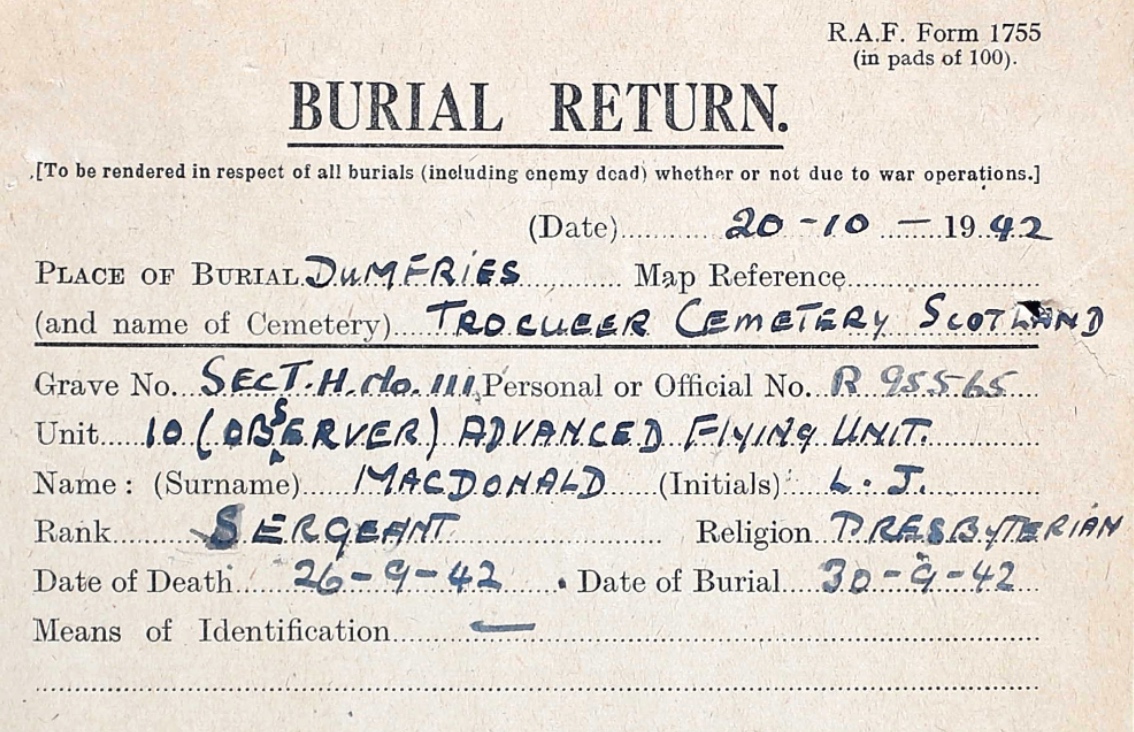 R.A.F. Form 1755
(in pads of 100).
BURIAL RETURN.
[To be rendered in respect of all burials (including enemy dead) whether or not due to war operations.]
(Date) 20-10-1942
PLACE OF BURIAL DUMFRIES Map Reference
(and name of Cemetery) TROCUEER CEMETERY SCOTLAND
Grave No. SECT. H. No. 111, Personal or Official No. R 95565
Unit 10 (OBSERVER) ADVANCED FLYING UNIT.
Name: (Surname) MACDONALD (Initials) L. J.
Rank SERGEANT Religion PRESBYTERIAN
Date of Death 26-9-42 Date of Burial 30-9-42
Means of Identification —